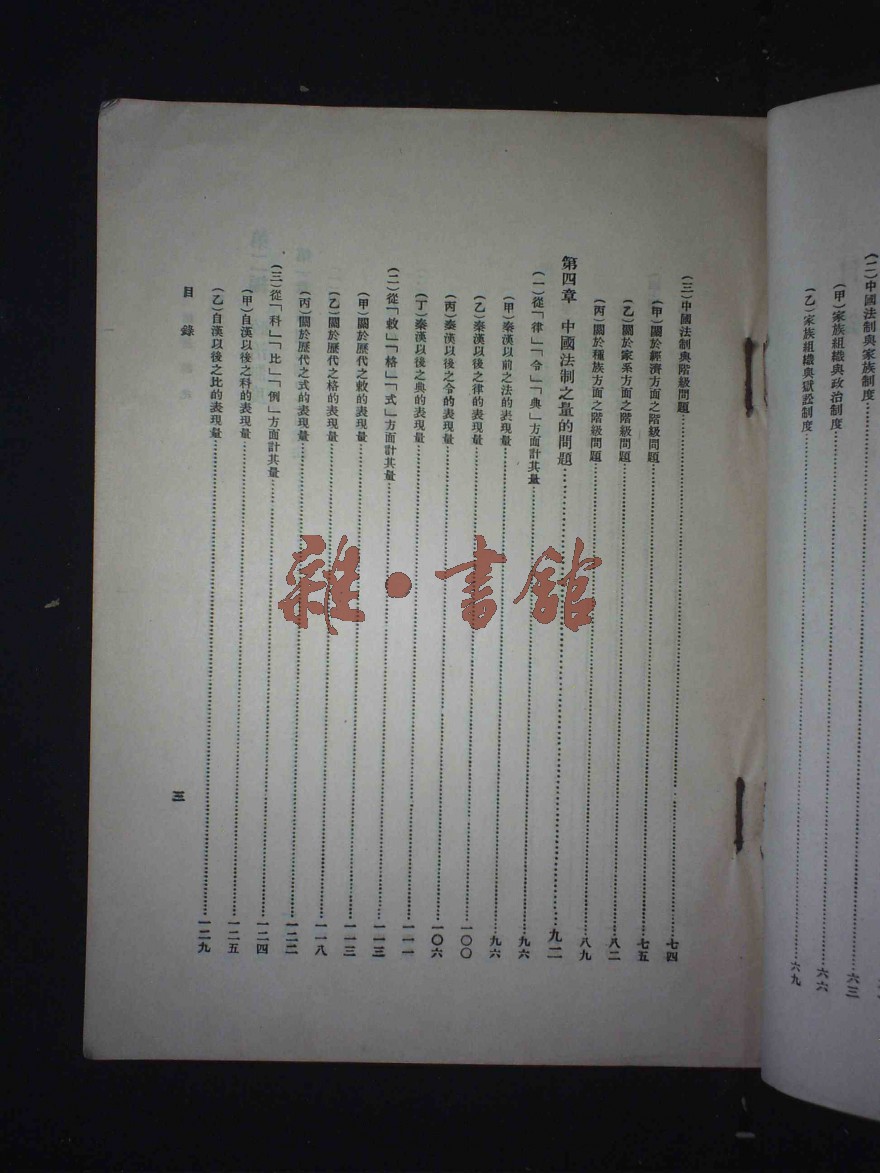 (二)中國法制與家族制度……六三
(甲)家族組織與政治制度……六六
(乙)家族組織與獄訟制度……六九
(三)中國法制與階級問題……七四
(甲)關於經濟方面之階級問題……七五
(乙)關於家系方面之階級問題……八二
(丙)關於種族方面之階級問題……八九
第四章 中國法制之量的問題……九二
(一)從「律」「令」「典」方面計其量……九六
(甲)秦漢以前之法的表現量……九六
(乙)秦漢以後之律的表現量……一〇〇
(丙)秦漢以後之令的表現量……一〇六
(丁)秦漢以後之典的表現量……一一一
(二)從「敕」「格」「式」方面計其量……一一三
(甲)關於歷代之敕的表現量……一一三
(乙)關於歷代之格的表現量……一一八
(丙)關於歷代之式的表現量……一二二
(三)從「科」「比」「例」方面計其量……一二四
(甲)自漢以後之科的表現量……一二五
(乙)自漢以後之比的表現量……一二九
目錄
三
雜·書館